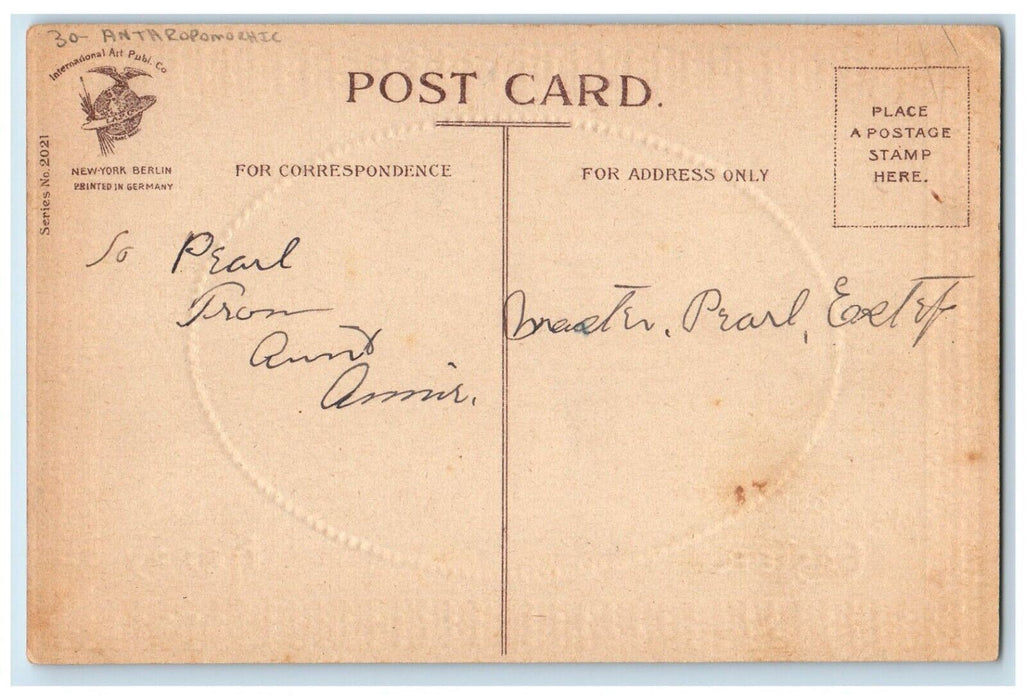 30- ANTHROPOMORHIC
International Art Publ. Co
POST CARD.
NEW-YORK BERLIN
PRINTED IN GERMANY
Series No. 2021
FOR CORRESPONDENCE
FOR ADDRESS ONLY
PLACE
A POSTAGE
STAMP
HERE.
To Pearl
From
Aunt
Annie.
Master, Pearl,